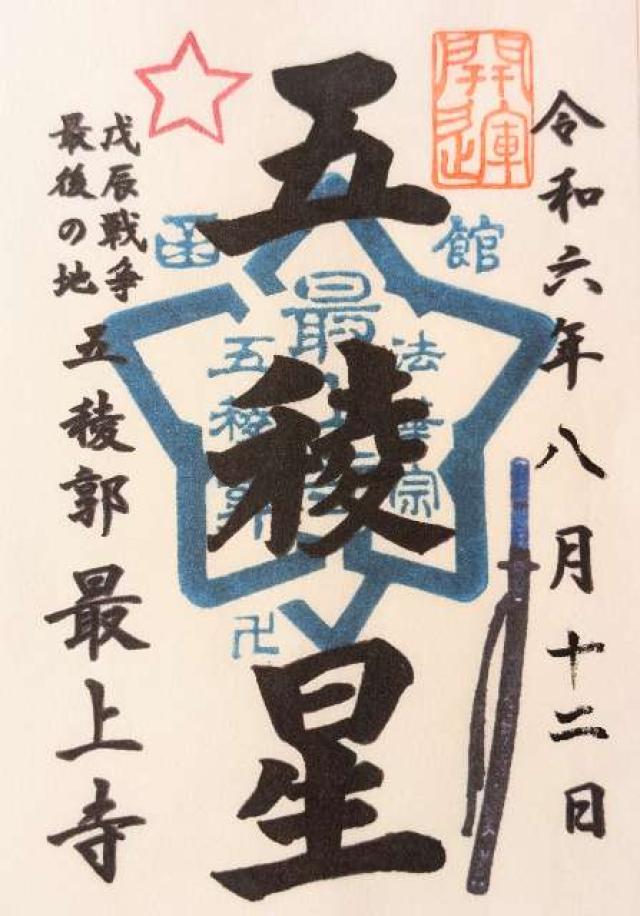 令和六年八月十二日
開運
五稜星
函館
法華宗
最上寺
五稜郭
卍
戊辰戦争
最後の地
五稜郭 最上寺